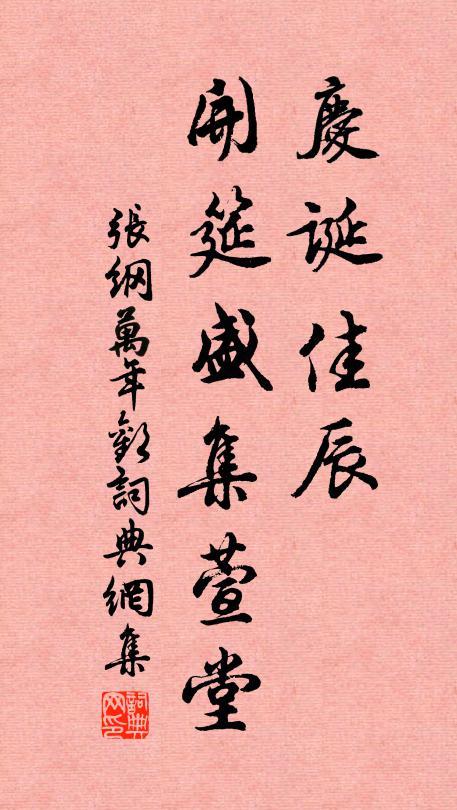 慶誕佳辰
開筵盛集萱堂
張綱萬年歡詞典網集
詞典网印